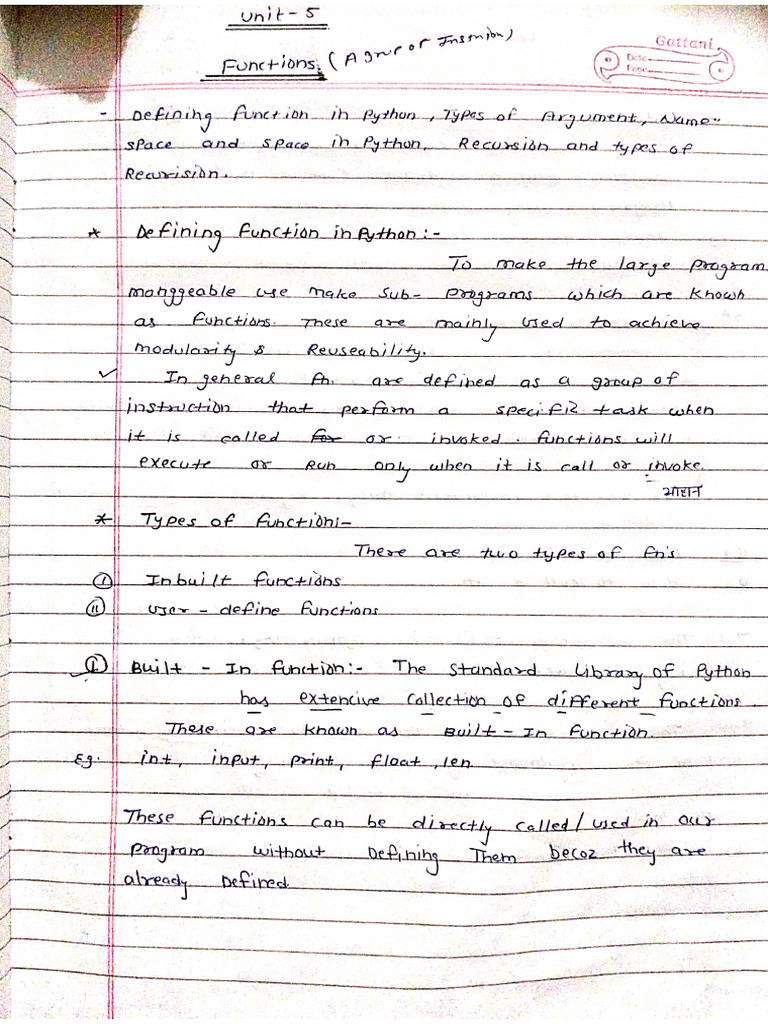 Unit - 5
Functions: (A grup of Insmion)
Gattani
Date
Page
- Defining function in Python, Types of Argument, Name-
space and space in Python. Recursion and types of
Recurision.
* Defining function in Python:-
To make the large program
manggeable use make sub- programs which are known
as functions. These are mainly used to achieve
modularity & Reuseability.
✓ In general fn. are defined as a group of
instruction that perform a specific task when
it is called for or invoked. functions will
execute or Run only when it is call or invoke.
* Types of function:-
There are two types of fn's
(i) Inbuilt functions
(ii) User - define functions
(i) Built - In function:- The Standard Library of Python
has extencive collection of different functions.
These are known as Built - In function.
Eg. int, input, print, float, len
These functions can be directly called/used in our
program without Defining Them becoz they are
already Defined.